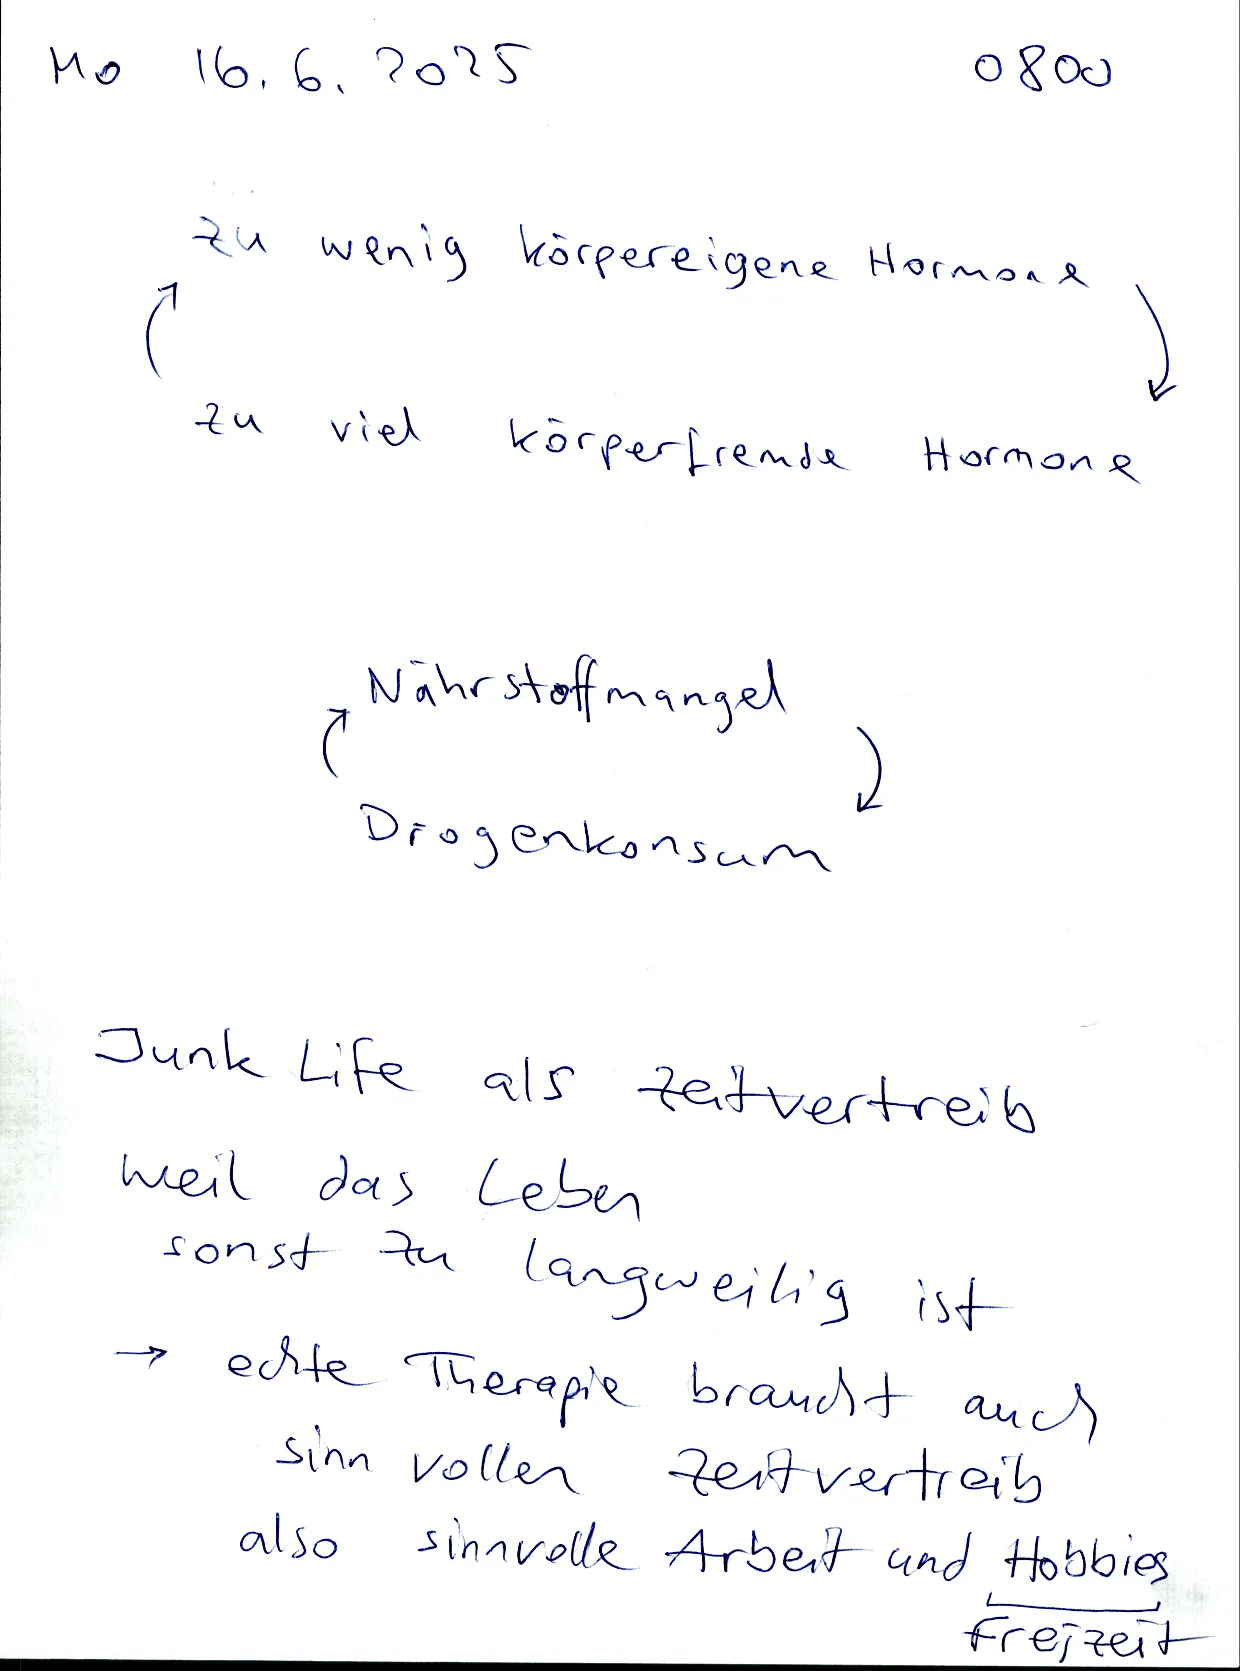 Mo 16.6.2025 0800
zu wenig körpereigene Hormone
zu viel körperfremde Hormone
Nährstoffmangel
Drogenkonsum
Junk Life als Zeitvertreib
weil das Leben
sonst zu langweilig ist
→ echte Therapie braucht auch
sinnvollen Zeitvertreib
also sinnvolle Arbeit und Hobbies
Freizeit